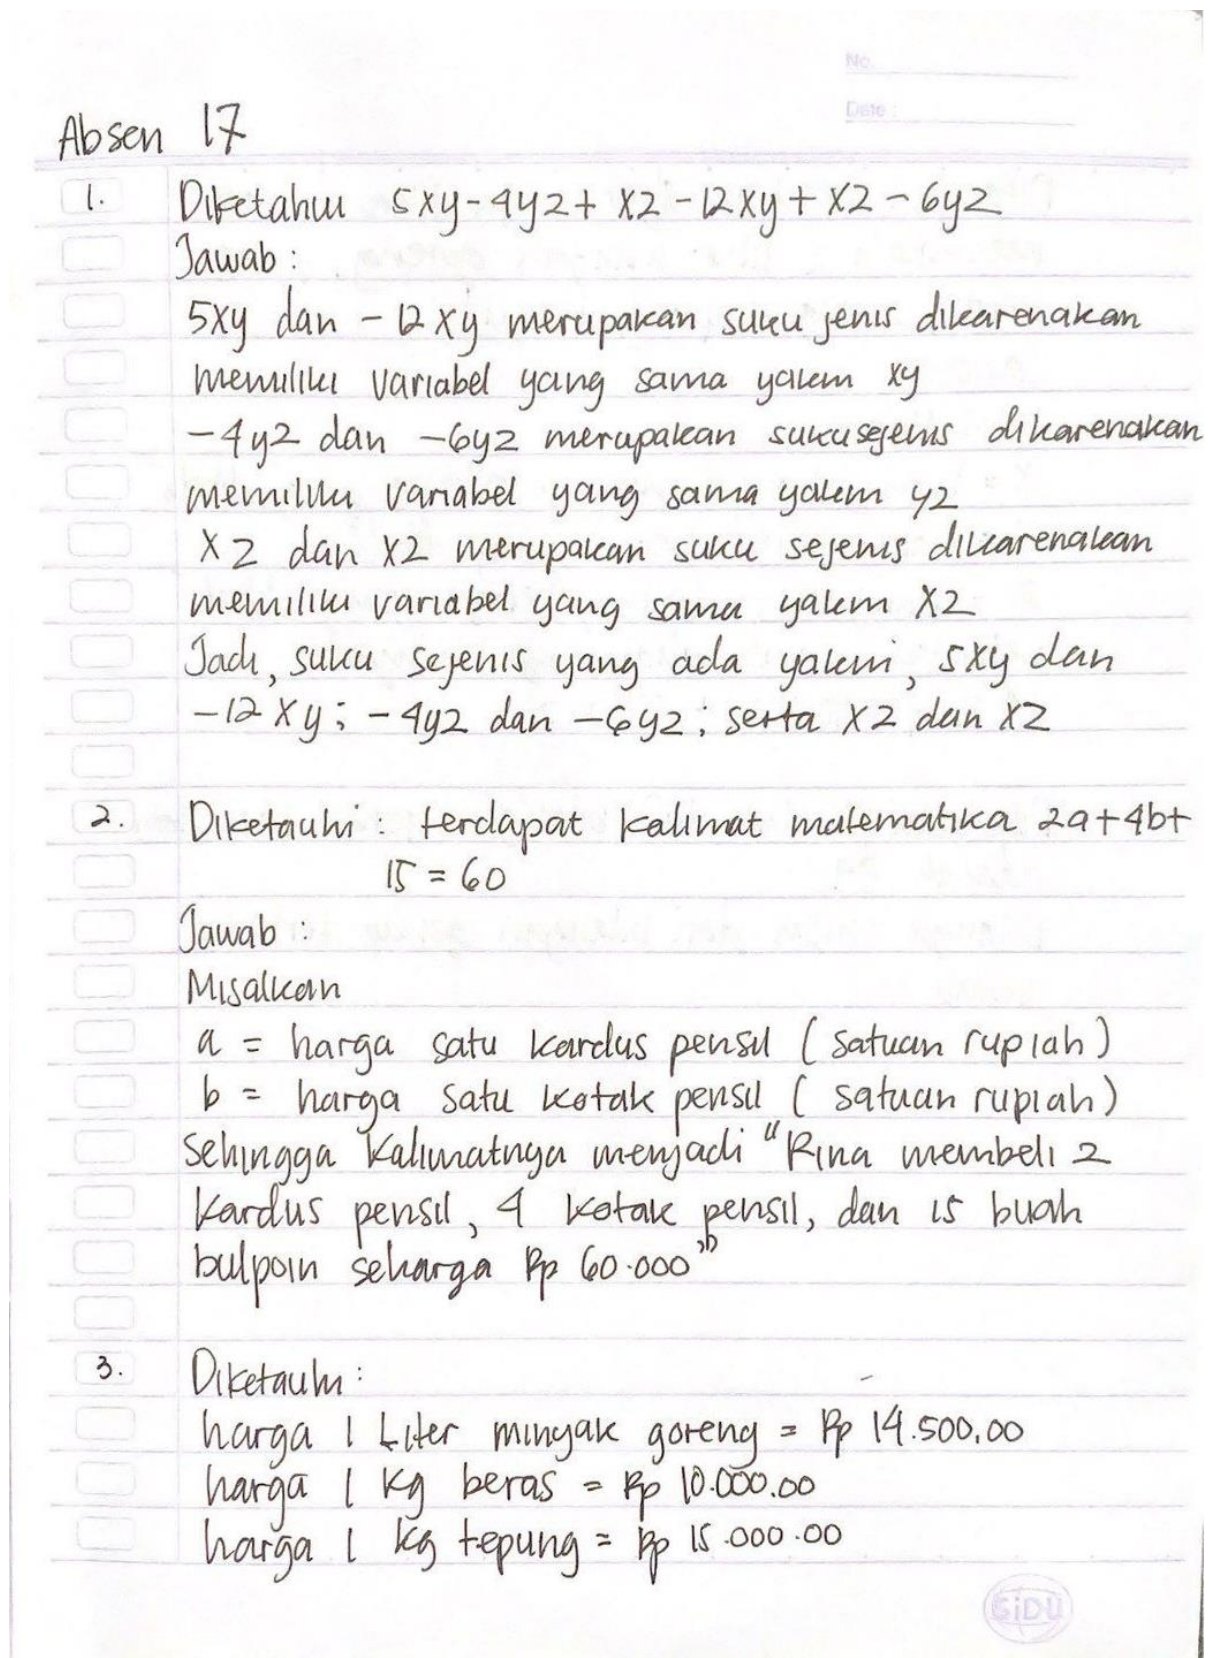 No.
Date :
Absen 17
1. Diketahui 5xy-4yz+ xz -12xy + xz - 6yz
Jawab :
5xy dan - 12 xy merupakan suku jenis dikarenakan
memiliki variabel yang sama yakni xy
-4yz dan -6yz merupakan suku sejenis dikarenakan
memiliki variabel yang sama yakni yz
xz dan xz merupakan suku sejenis dikarenakan
memiliki variabel yang sama yakni xz
Jadi, suku sejenis yang ada yakni, 5xy dan
-12 xy ; - 4yz dan -6yz ; serta xz dan xz
2. Diketauhi : terdapat kalimat matematika 2a+4b+
15 = 60
Jawab :
Misalkan
a = harga satu kardus pensil ( satuan rupiah )
b = harga satu kotak pensil ( satuan rupiah )
Sehingga kalimatnya menjadi "Rina membeli 2
kardus pensil, 4 kotak pensil, dan 15 buah
bulpoin seharga Rp 60.000"
3. Diketauhi :
harga 1 Liter minyak goreng = Rp 14.500,00
harga 1 kg beras = Rp 10.000.00
harga 1 kg tepung = Rp 15.000.00
SiDU